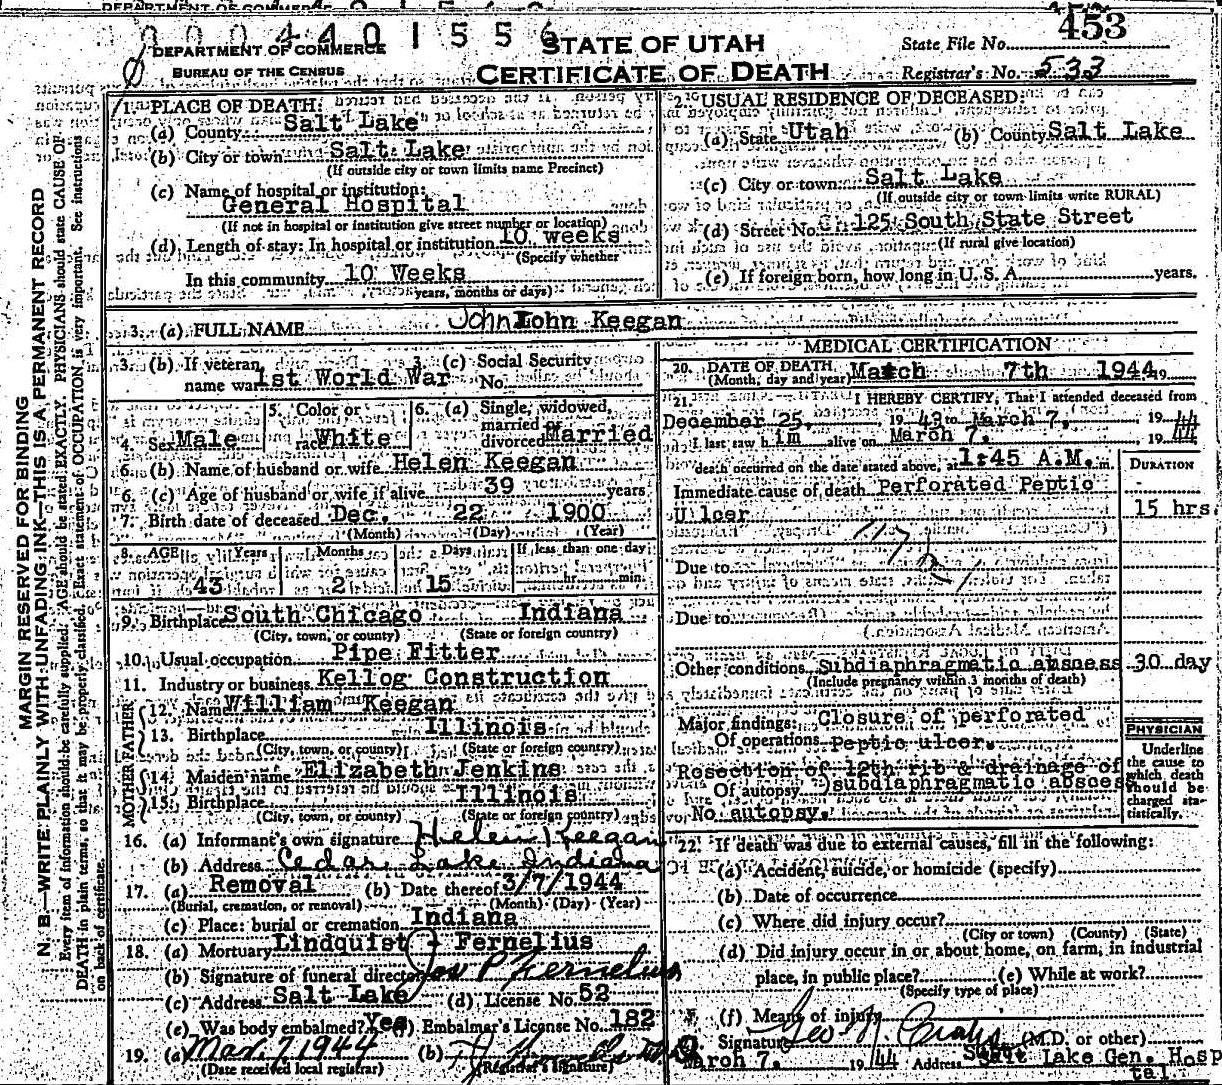 DEPARTMENT OF COMMERCE
0004401556
DEPARTMENT OF COMMERCE
BUREAU OF THE CENSUS
STATE OF UTAH
CERTIFICATE OF DEATH
State File No. 453
Registrar's No. 533
MARGIN RESERVED FOR BINDING
N. B.—WRITE PLAINLY WITH UNFADING INK—THIS IS A PERMANENT RECORD
Every item of information should be carefully supplied. AGE should be stated EXACTLY. PHYSICIANS should state CAUSE OF
DEATH in plain terms, so that it may be properly classified. Exact statement of OCCUPATION is very important. See instructions
on back of certificate.
1. PLACE OF DEATH:
(a) County Salt Lake
(b) City or town Salt Lake
(If outside city or town limits name Precinct)
(c) Name of hospital or institution:
General Hospital
(If not in hospital or institution give street number or location)
(d) Length of stay: In hospital or institution 10 weeks
(Specify whether
In this community 10 Weeks
years, months or days)
2. USUAL RESIDENCE OF DECEASED:
(a) State Utah (b) County Salt Lake
(c) City or town Salt Lake
(If outside city or town limits write RURAL)
(d) Street No. 125 South State Street
(If rural give location)
(e) If foreign born, how long in U. S. A. years.
3. (a) FULL NAME John Keegan
3. (b) If veteran name war 1st World War
3. (c) Social Security No.
4. Sex Male
5. Color or race White
6. (a) Single, widowed, married or divorced Married
6. (b) Name of husband or wife Helen Keegan
6. (c) Age of husband or wife if alive 39 years
7. Birth date of deceased Dec. 22 1900
(Month) (Day) (Year)
8. AGE Years Months Days If less than one day
43 2 15 hr. min.
9. Birthplace South Chicago Indiana
(City, town, or county) (State or foreign country)
10. Usual occupation Pipe Fitter
11. Industry or business Kellog Construction
FATHER
12. Name William Keegan
13. Birthplace Illinois
(City, town, or county) (State or foreign country)
MOTHER
14. Maiden name Elizabeth Jenkins
15. Birthplace Illinois
(City, town, or county) (State or foreign country)
16. (a) Informant's own signature Helen Keegan
(b) Address Cedar Lake Indiana
17. (a) Removal (b) Date thereof 3/7/1944
(Burial, cremation, or removal) (Month) (Day) (Year)
(c) Place: burial or cremation Indiana
18. (a) Mortuary Lindquist & Fernelius
(b) Signature of funeral director Jos P Fernelius
(c) Address Salt Lake (d) License No. 52
(e) Was body embalmed? Yes (f) Embalmer's License No. 182
19. (a) Mar. 7, 1944 (b)
(Date received local registrar) (Registrar's signature)
MEDICAL CERTIFICATION
20. DATE OF DEATH March 7th 1944 19
(Month, day and year)
21. I HEREBY CERTIFY, That I attended deceased from
December 25, 1943 to March 7, 1944
I last saw him alive on March 7, 1944
death occurred on the date stated above, at 1:45 A.M. m.
DURATION
Immediate cause of death Perforated Peptic
Ulcer 15 hrs
Due to
Due to
Other conditions Subdiaphragmatic absess 30 day
(Include pregnancy within 3 months of death)
Major findings: Closure of perforated
Of operations Peptic ulcer.
Resection of 12th rib & drainage of
Of autopsy subdiaphragmatic absess
No autopsy.
PHYSICIAN
Underline
the cause to
which death
should be
charged sta-
tistically.
22. If death was due to external causes, fill in the following:
(a) Accident, suicide, or homicide (specify)
(b) Date of occurrence
(c) Where did injury occur?
(City or town) (County) (State)
(d) Did injury occur in or about home, on farm, in industrial
place, in public place? (e) While at work?
(Specify type of place)
(f) Means of injury
Signature Geo N. (M.D. or other)
March 7. 1944 Address Salt Lake Gen. Hosp
tal